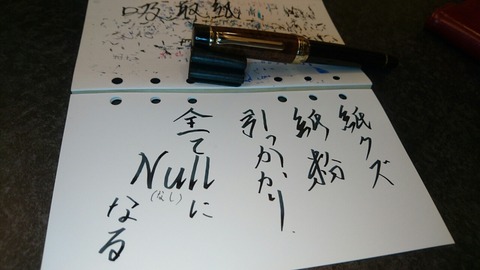 吸取紙
紙クズ
紙粉
引っかかり
全てNullに
(なし)
なる